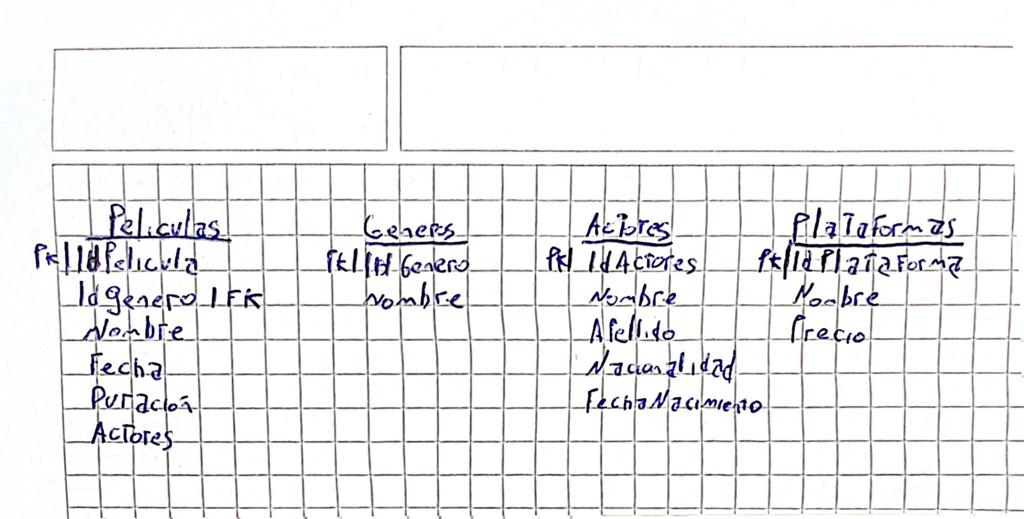 Peliculas
PK | IdPelicula
Idgenero | FK
Nombre
Fecha
Duración
Actores
Generos
PK | Id Genero
Nombre
Actores
PK | IdActores
Nombre
Apellido
Nacionalidad
FechaNacimiento
Plataformas
PK | Id Plataforma
Nombre
Precio